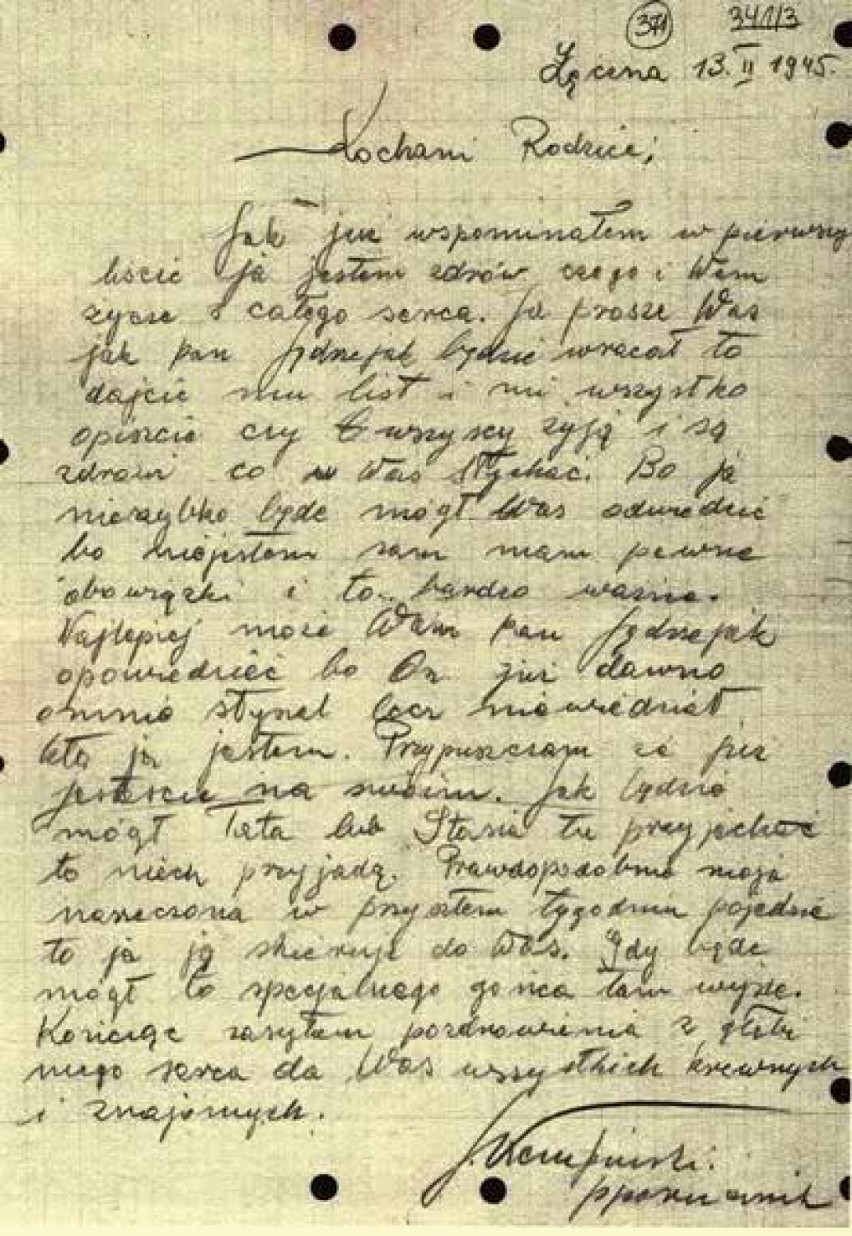 371 341/3
Łęcena 13.II 1945.
Kochani Rodzice,
Jak już wspominałem w pierwszy
liście ja jestem zdrów czego i Wam
życze z całego serca. Ja prosze Was
jak pan Jędrzejak będzie wracał to
dajcie mu list i mi wszystko
opiszcie czy wszyscy żyją i są
zdrowi co u Was słychać. Bo ja
nieszybko będe mógł Was odwiedzić
bo niejestem sam mam pewne
obowiązki i to bardzo ważne.
Najlepiej może Wam pan Jędrzejak
opowiedzieć bo On już dawno
omnie słyszał lecz niewiedział
kto ja jestem. Przypuszczam że już
jesteście na swoim. Jak będzie
mógł Tata lub Stasia tu przyjechać
to niech przyjadą. Prawdopodobnie moja
narzeczona w przyszłem tygodniu pojedzie
to ja ją skieruje do Was. Gdy będe
mógł to specjalnego gońca tam wyśle.
Kończąc zasyłam pozdrowienia z głębi
mego serca da Was wszystkich krewnych
i znajomych.
J. Kempiński.
pporucznik